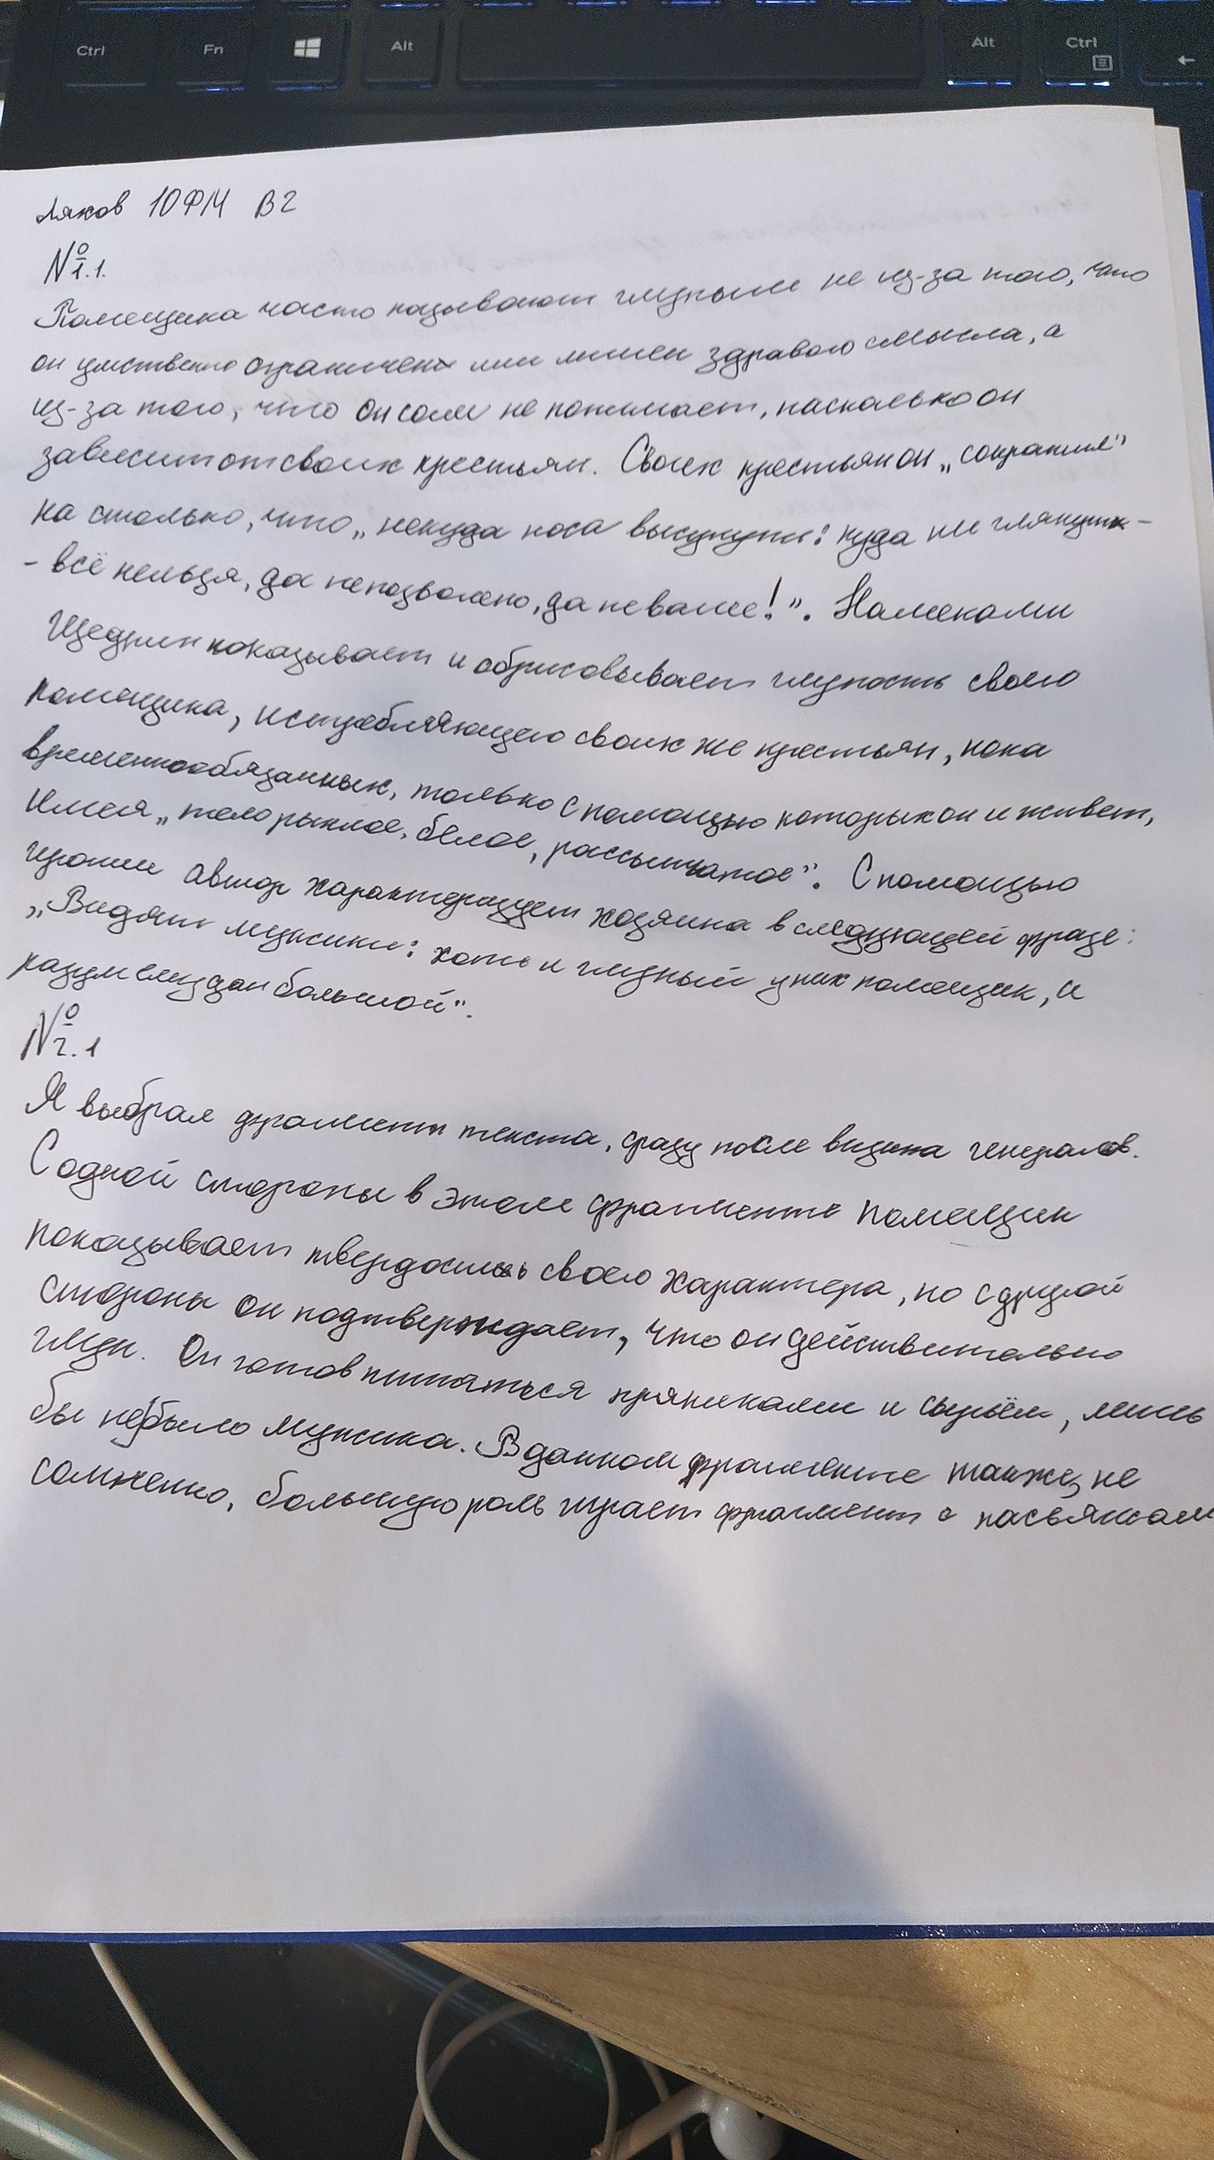 Ctrl Fn Alt Alt Ctrl ←
Ляков 10ФМ В2
№1.1.
Помещика часто называют глупым не из-за того, что
он умственно ограничен или лишен здравого смысла, а
из-за того, что он сам не понимает, насколько он
зависит от своих крестьян. Своих крестьян он „сократил"
на столько, что „некуда носа высунуть: куда ни глянут -
- всё нельзя, да не позволено, да не ваше!". Намеками
Щедрин показывает и обрисовывает глупость своего
помещика, истребляющего своих же крестьян, пока
временнообязанных, только с помощью которых он и живет,
имея „тело рыхлое, белое, рассыпчатое". С помощью
иронии автор характеризует хозяина в следующей фразе:
„Видят мужики: хоть и глупый у них помещик, а
разум ему дан большой".
№2.1
Я выбрал фрагмент текста, сразу после визита генералов.
С одной стороны в этом фрагменте помещик
показывает твердость своего характера, но с другой
стороны он подтверждает, что он действительно
глуп. Он готов питаться пряниками и сырьём, лишь
бы не было мужика. В данном фрагменте также, не
сомненно, большую роль играет фрагмент с пасьянсом